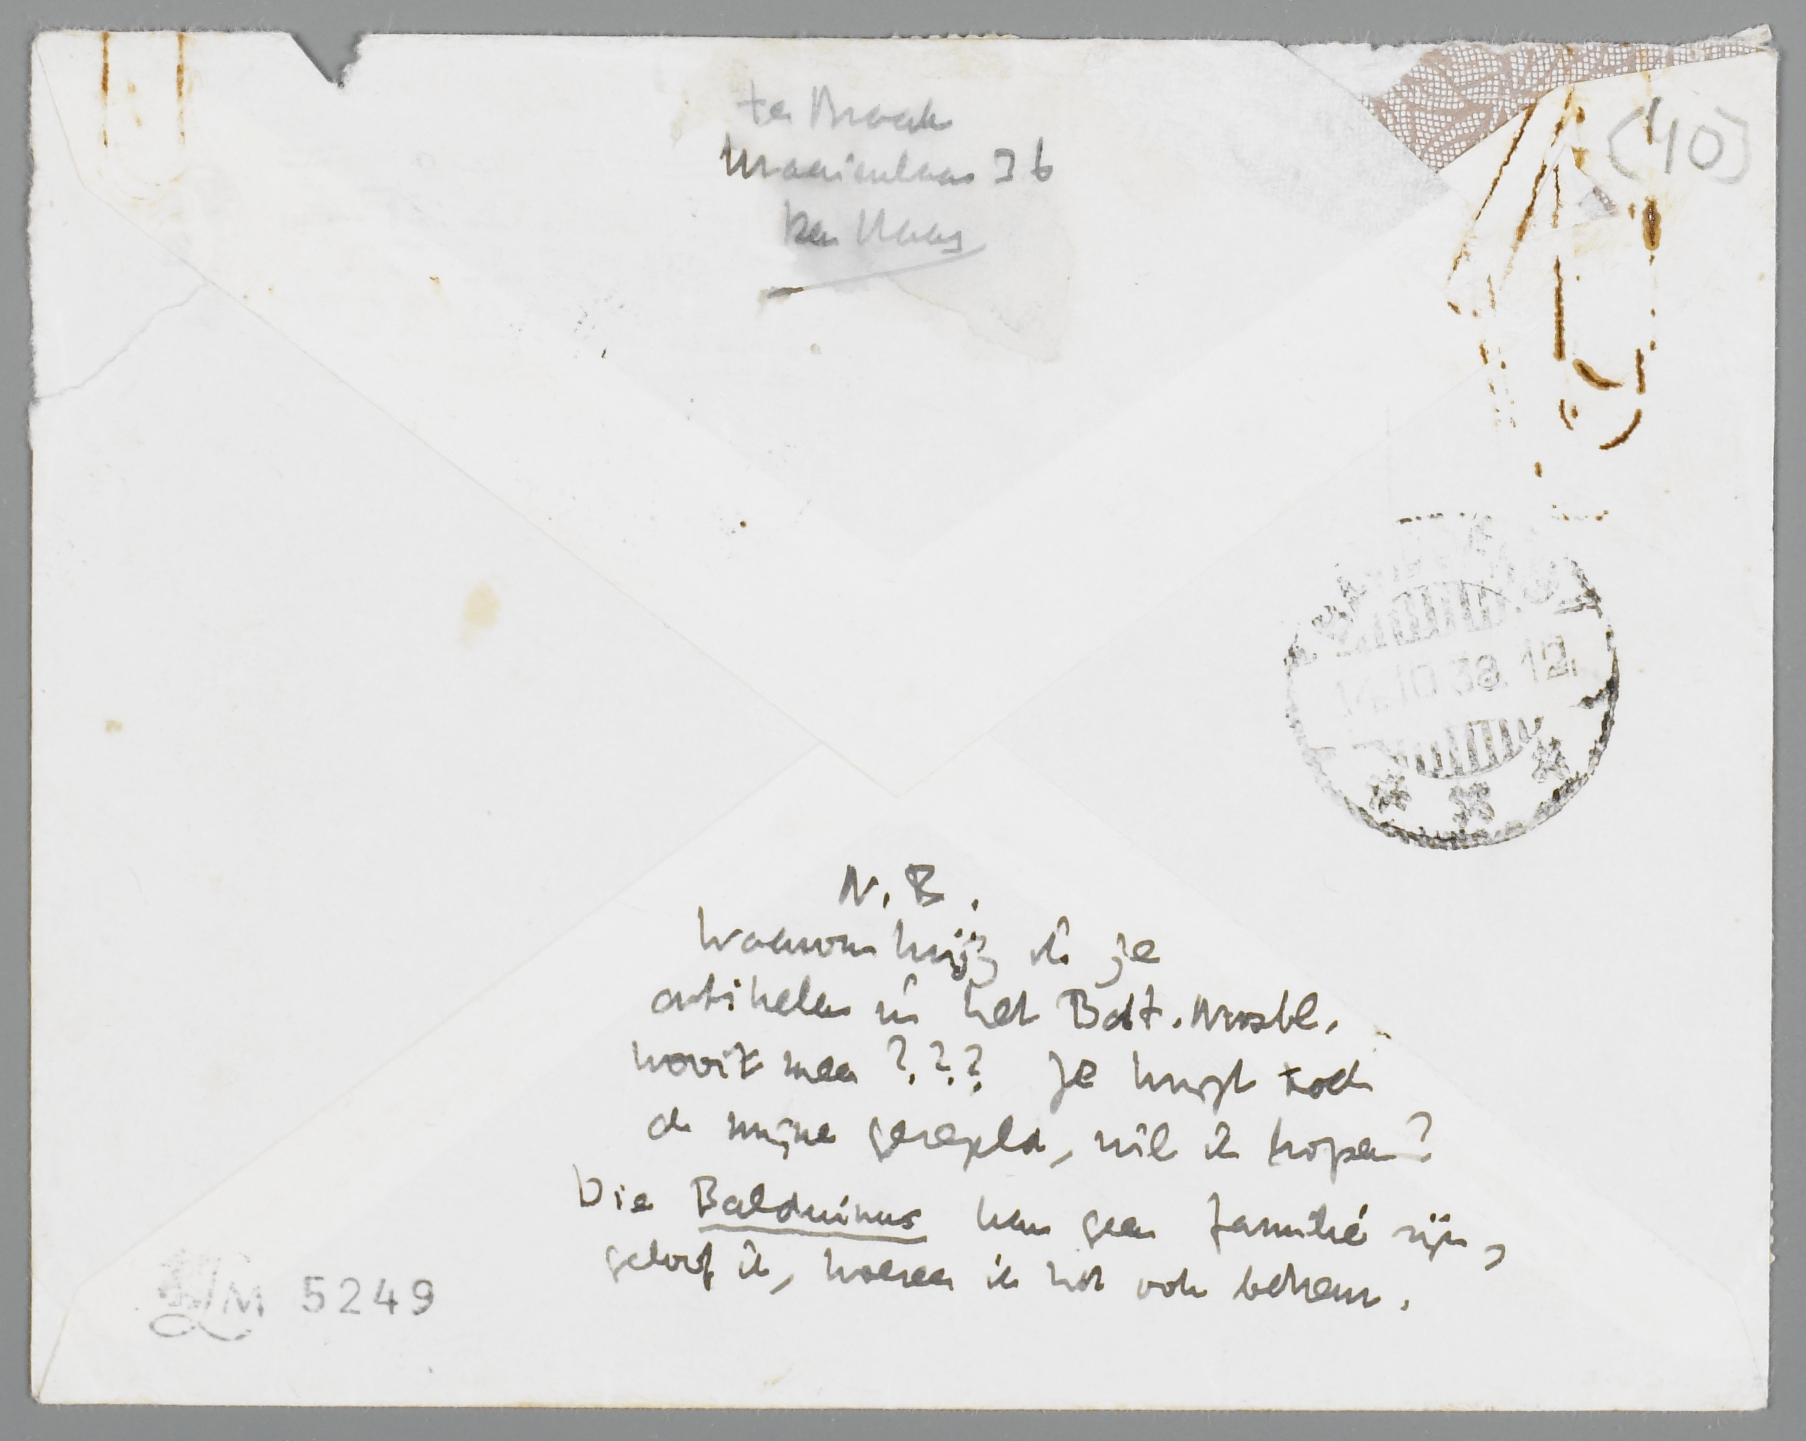 ter Braak
Kraaienlaan 36
Den Haag
(40)
14.10.38.12
N.B.
Waarom krijg ik je
artikelen in het Bat. Nwsbl.
nooit meer??? Je krijgt toch
de mijne geregeld, wil ik hopen?
Die Balduinus kan geen familie zijn,
geloof ik, hoezeer ik het ook betreur.
LM 5249